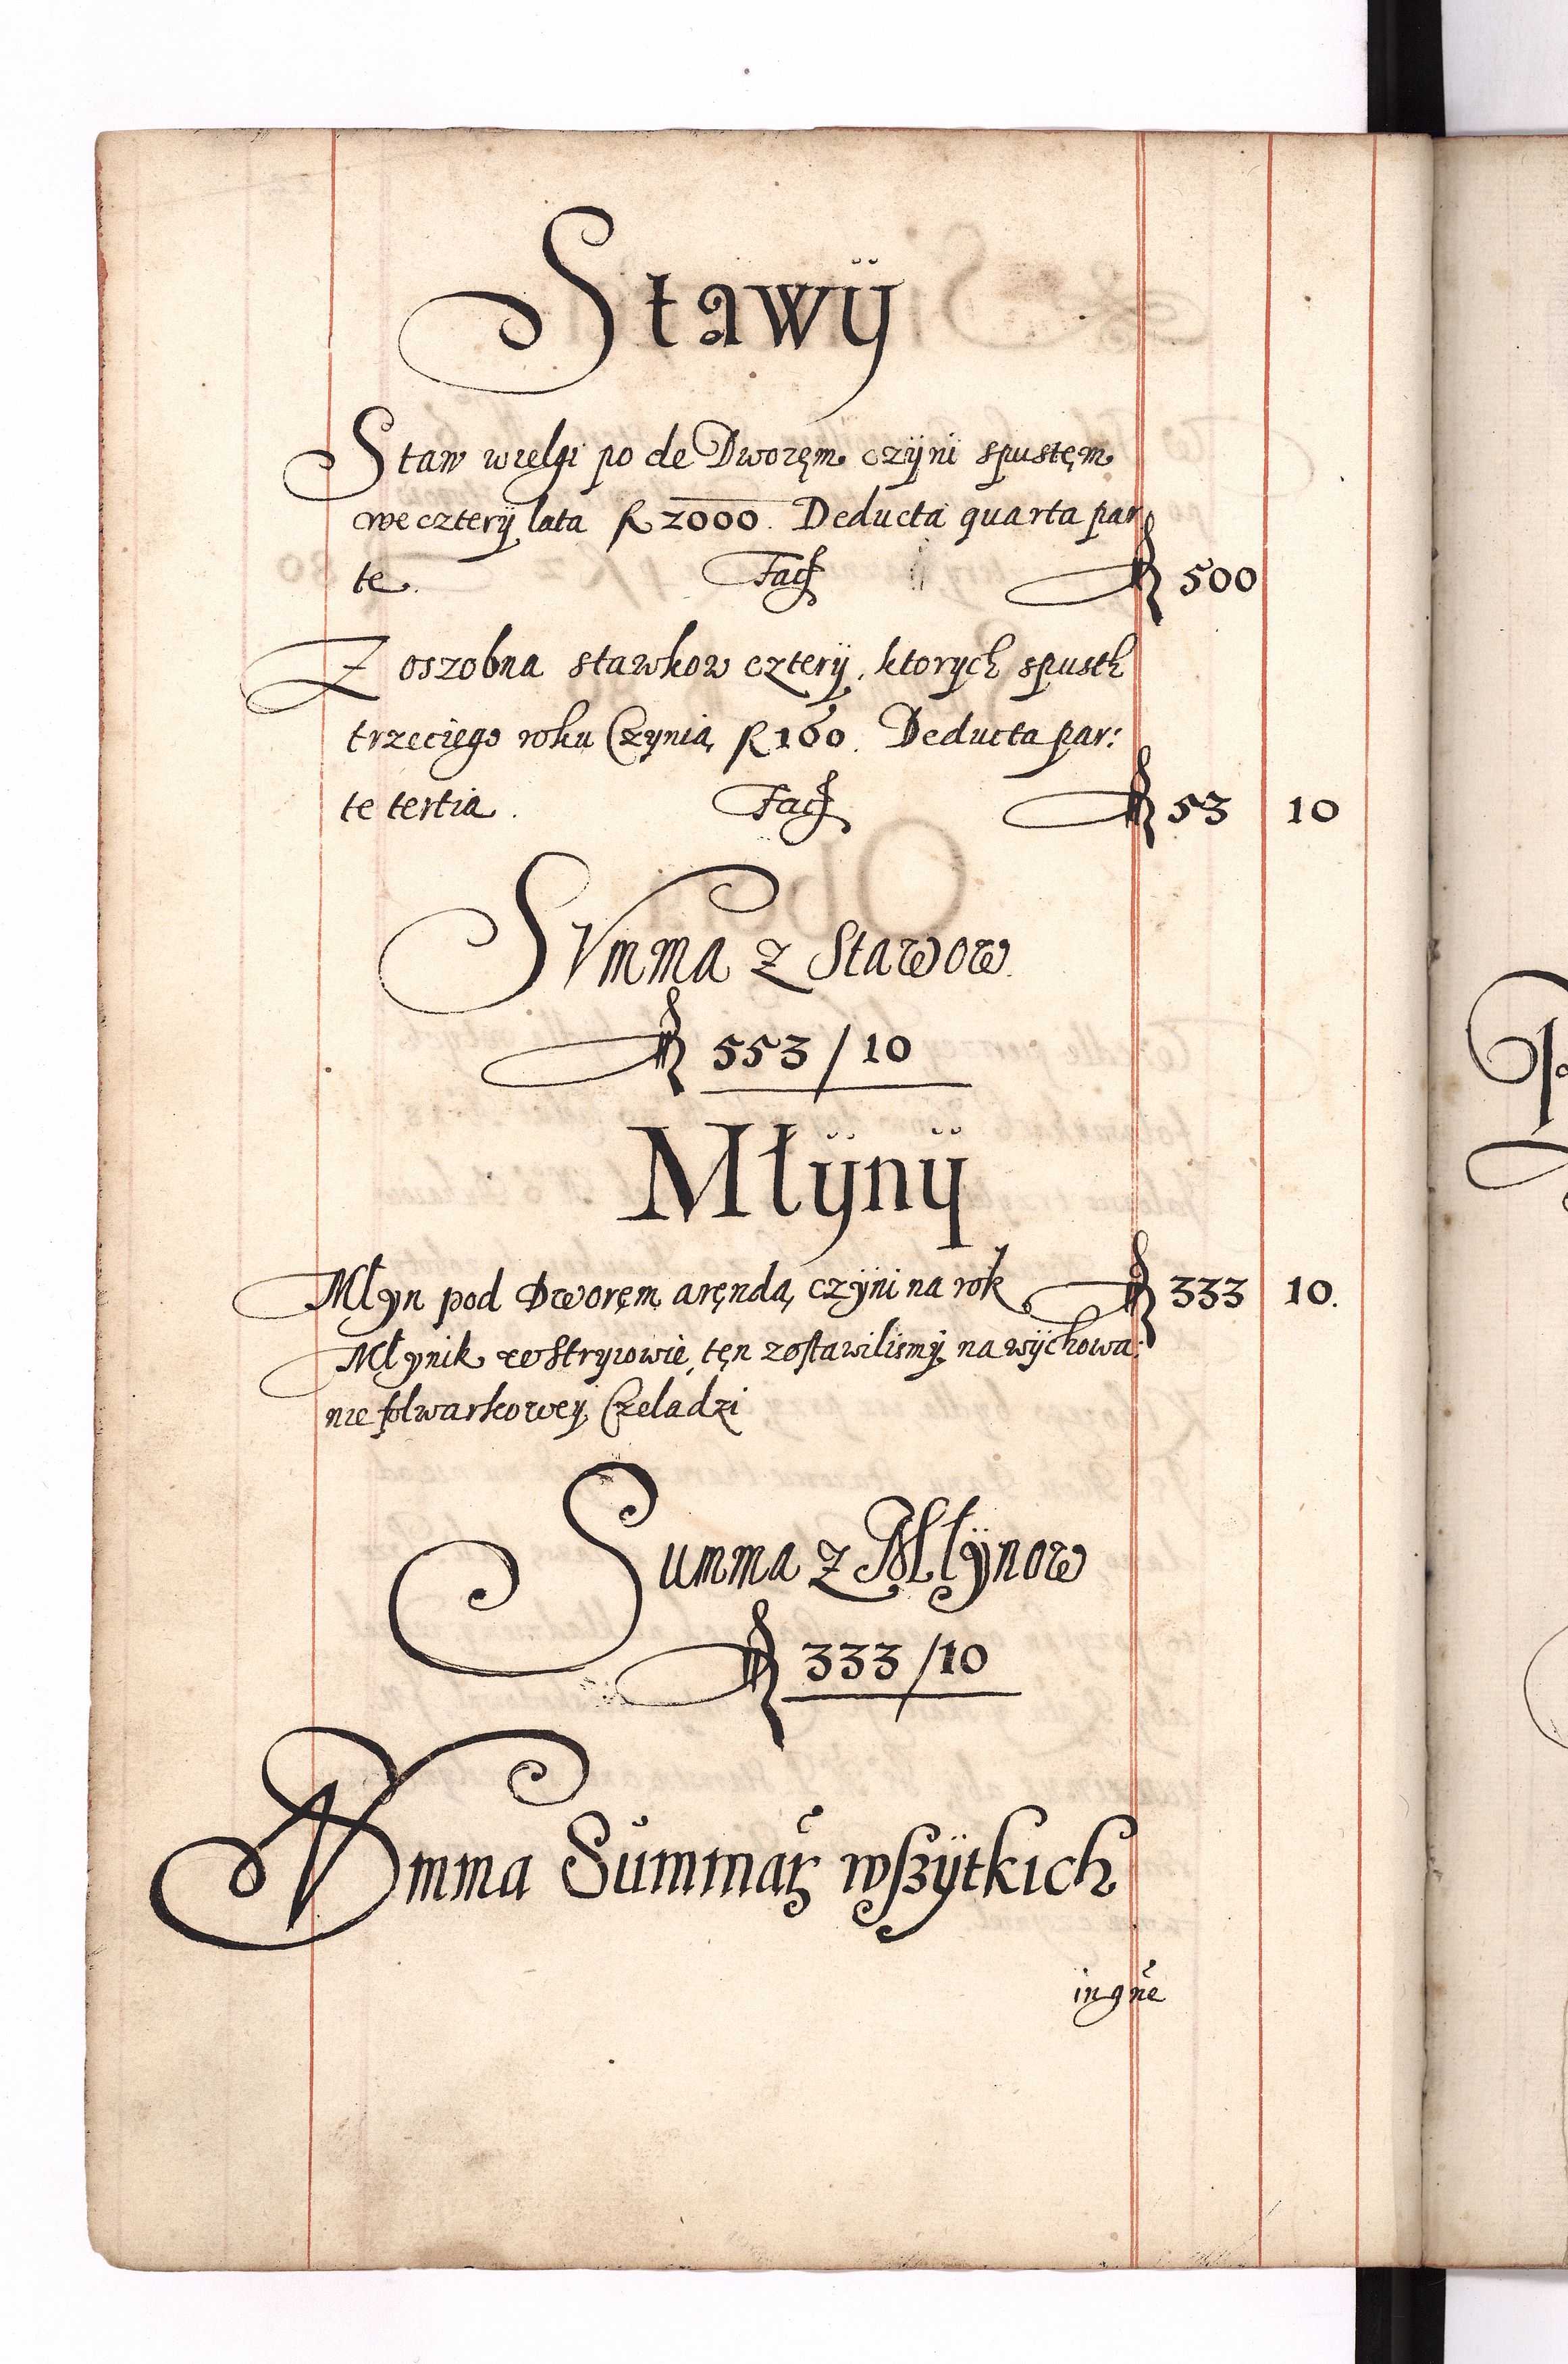 Stawÿ
Staw wielgi po de Dworęm czÿni spustęm
we czterÿ lata R 2000. Deducta quarta par
te. Facit R 500
Z oszobna stawkow czterÿ, ktorych spusth
trzeciego roku Czynią R 160. Deducta par:
te tertia. Facit R 53 10
SVmma z Stawow.
R 553 / 10
Młÿnÿ
Młyn pod Dworęm arędą czÿni na rok R 333 10.
Młynik we Stryiowie, tęn zostawilismÿ na wÿchowa:
nie folwarkowey Czeladzi
Summa z Młÿnow
R 333 / 10
SVmma Summarz wszÿtkich
in gñe